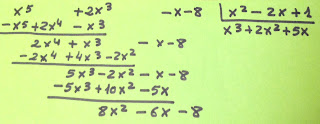 x⁵ +2x³ -x-8 | x² - 2x + 1
-x⁵+2x⁴ - x³ x³+2x²+5x
2x⁴ + x³ - x - 8
-2x⁴ + 4x³ - 2x²
5x³ - 2x² - x - 8
-5x³ + 10x² - 5x
8x² - 6x - 8